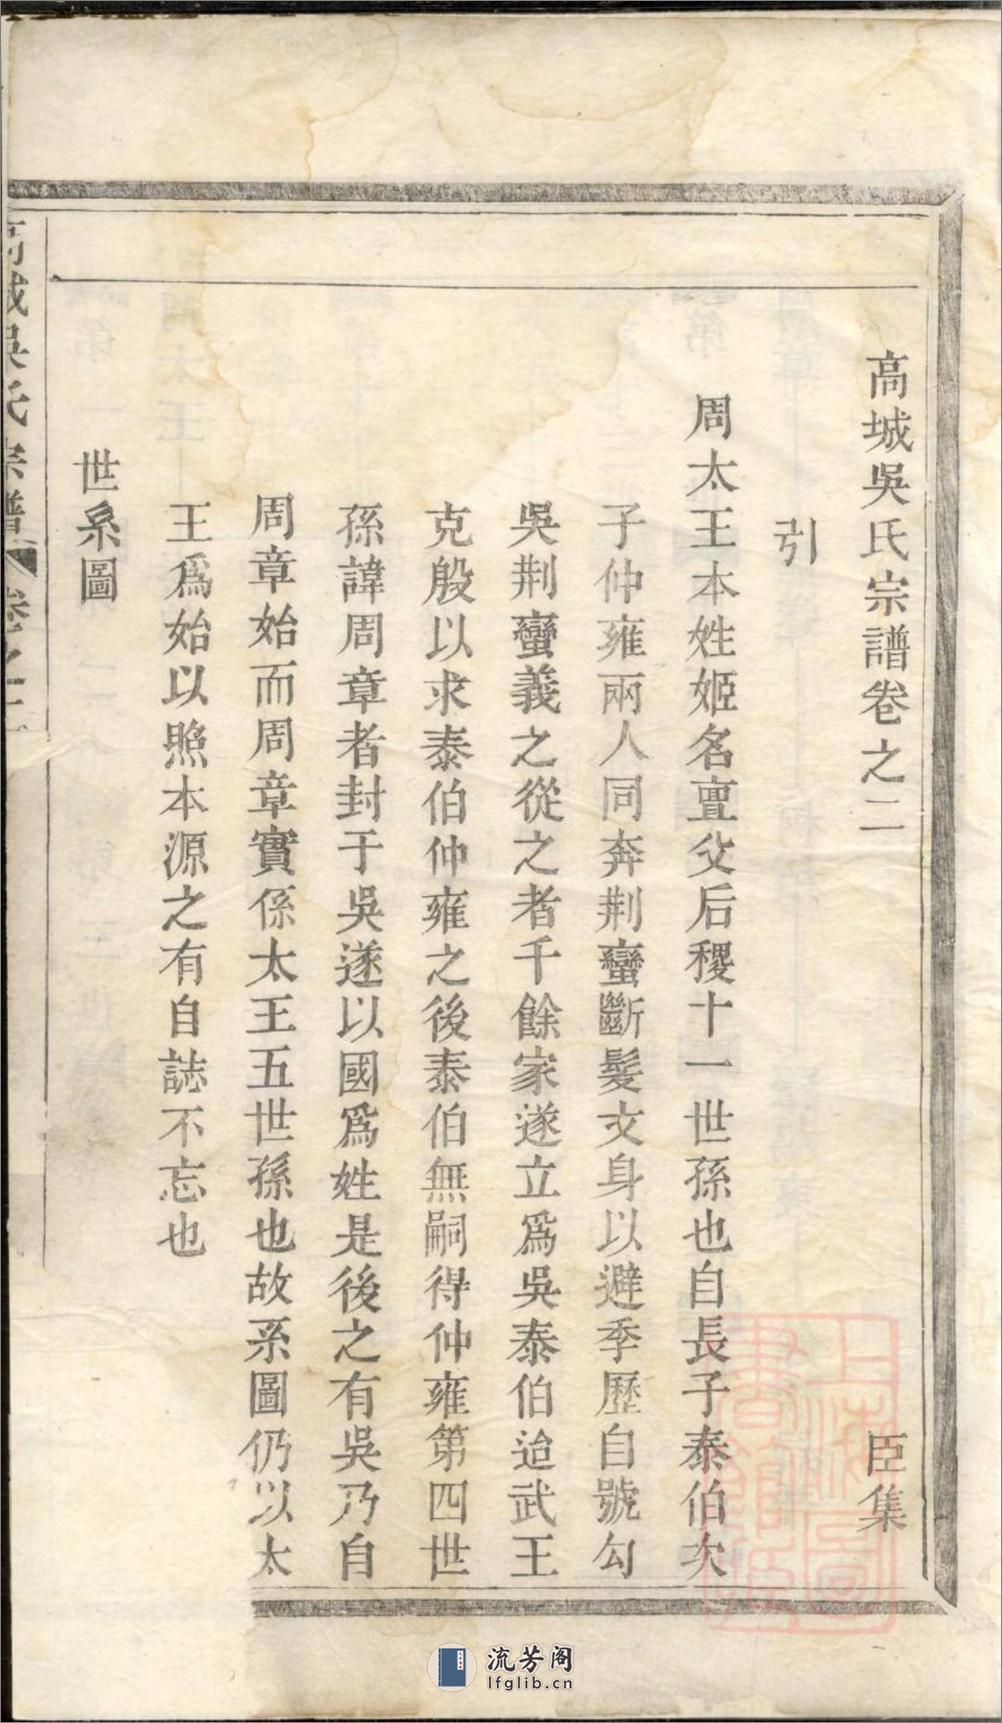 高城吳氏宗譜卷之二　臣集
引
周太王本姓姬名亶父后稷十一世孫也自長子泰伯次
子仲雍兩人同奔荆蠻斷髮文身以避季歷自號勾
吳荆蠻義之從之者千餘家遂立爲吳泰伯迨武王
克殷以求泰伯仲雍之後泰伯無嗣得仲雍第四世
孫諱周章者封于吳遂以國爲姓是後之有吳乃自
周章始而周章實係太王五世孫也故系圖仍以太
王爲始以照本源之有自誌不忘也
世系圖
高城吳氏宗譜 卷之二
上海圖書館藏
流芳阁
lfglib.cn